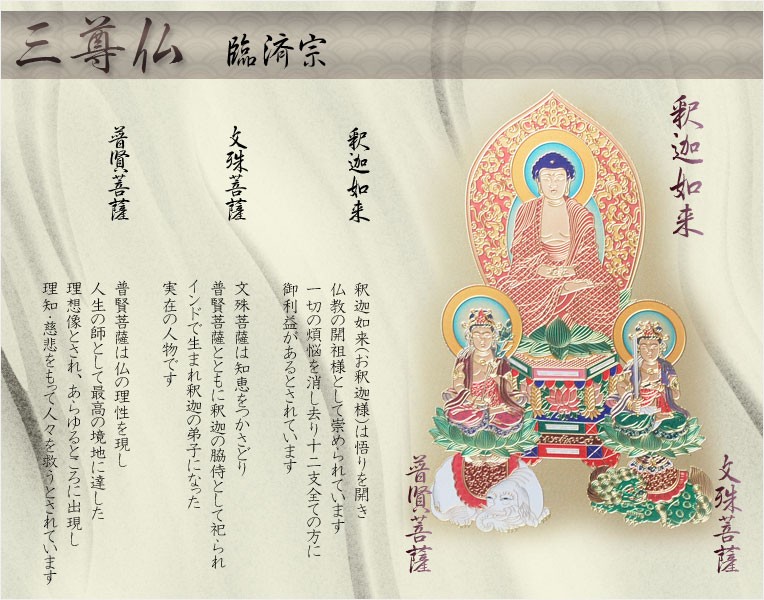 三尊仏 臨済宗
釈迦如来
普賢菩薩
文殊菩薩
釈迦如来
釈迦如来(お釈迦様)は悟りを開き
仏教の開祖様として崇められています
一切の煩悩を消し去り十二支全ての方に
御利益があるとされています
文殊菩薩
文殊菩薩は知恵をつかさどり
普賢菩薩とともに釈迦の脇侍として祀られ
インドで生まれ釈迦の弟子になった
実在の人物です
普賢菩薩
普賢菩薩は仏の理性を現し
人生の師として最高の境地に達した
理想像とされ、あらゆるところに出現し
理知・慈悲をもって人々を救うとされています